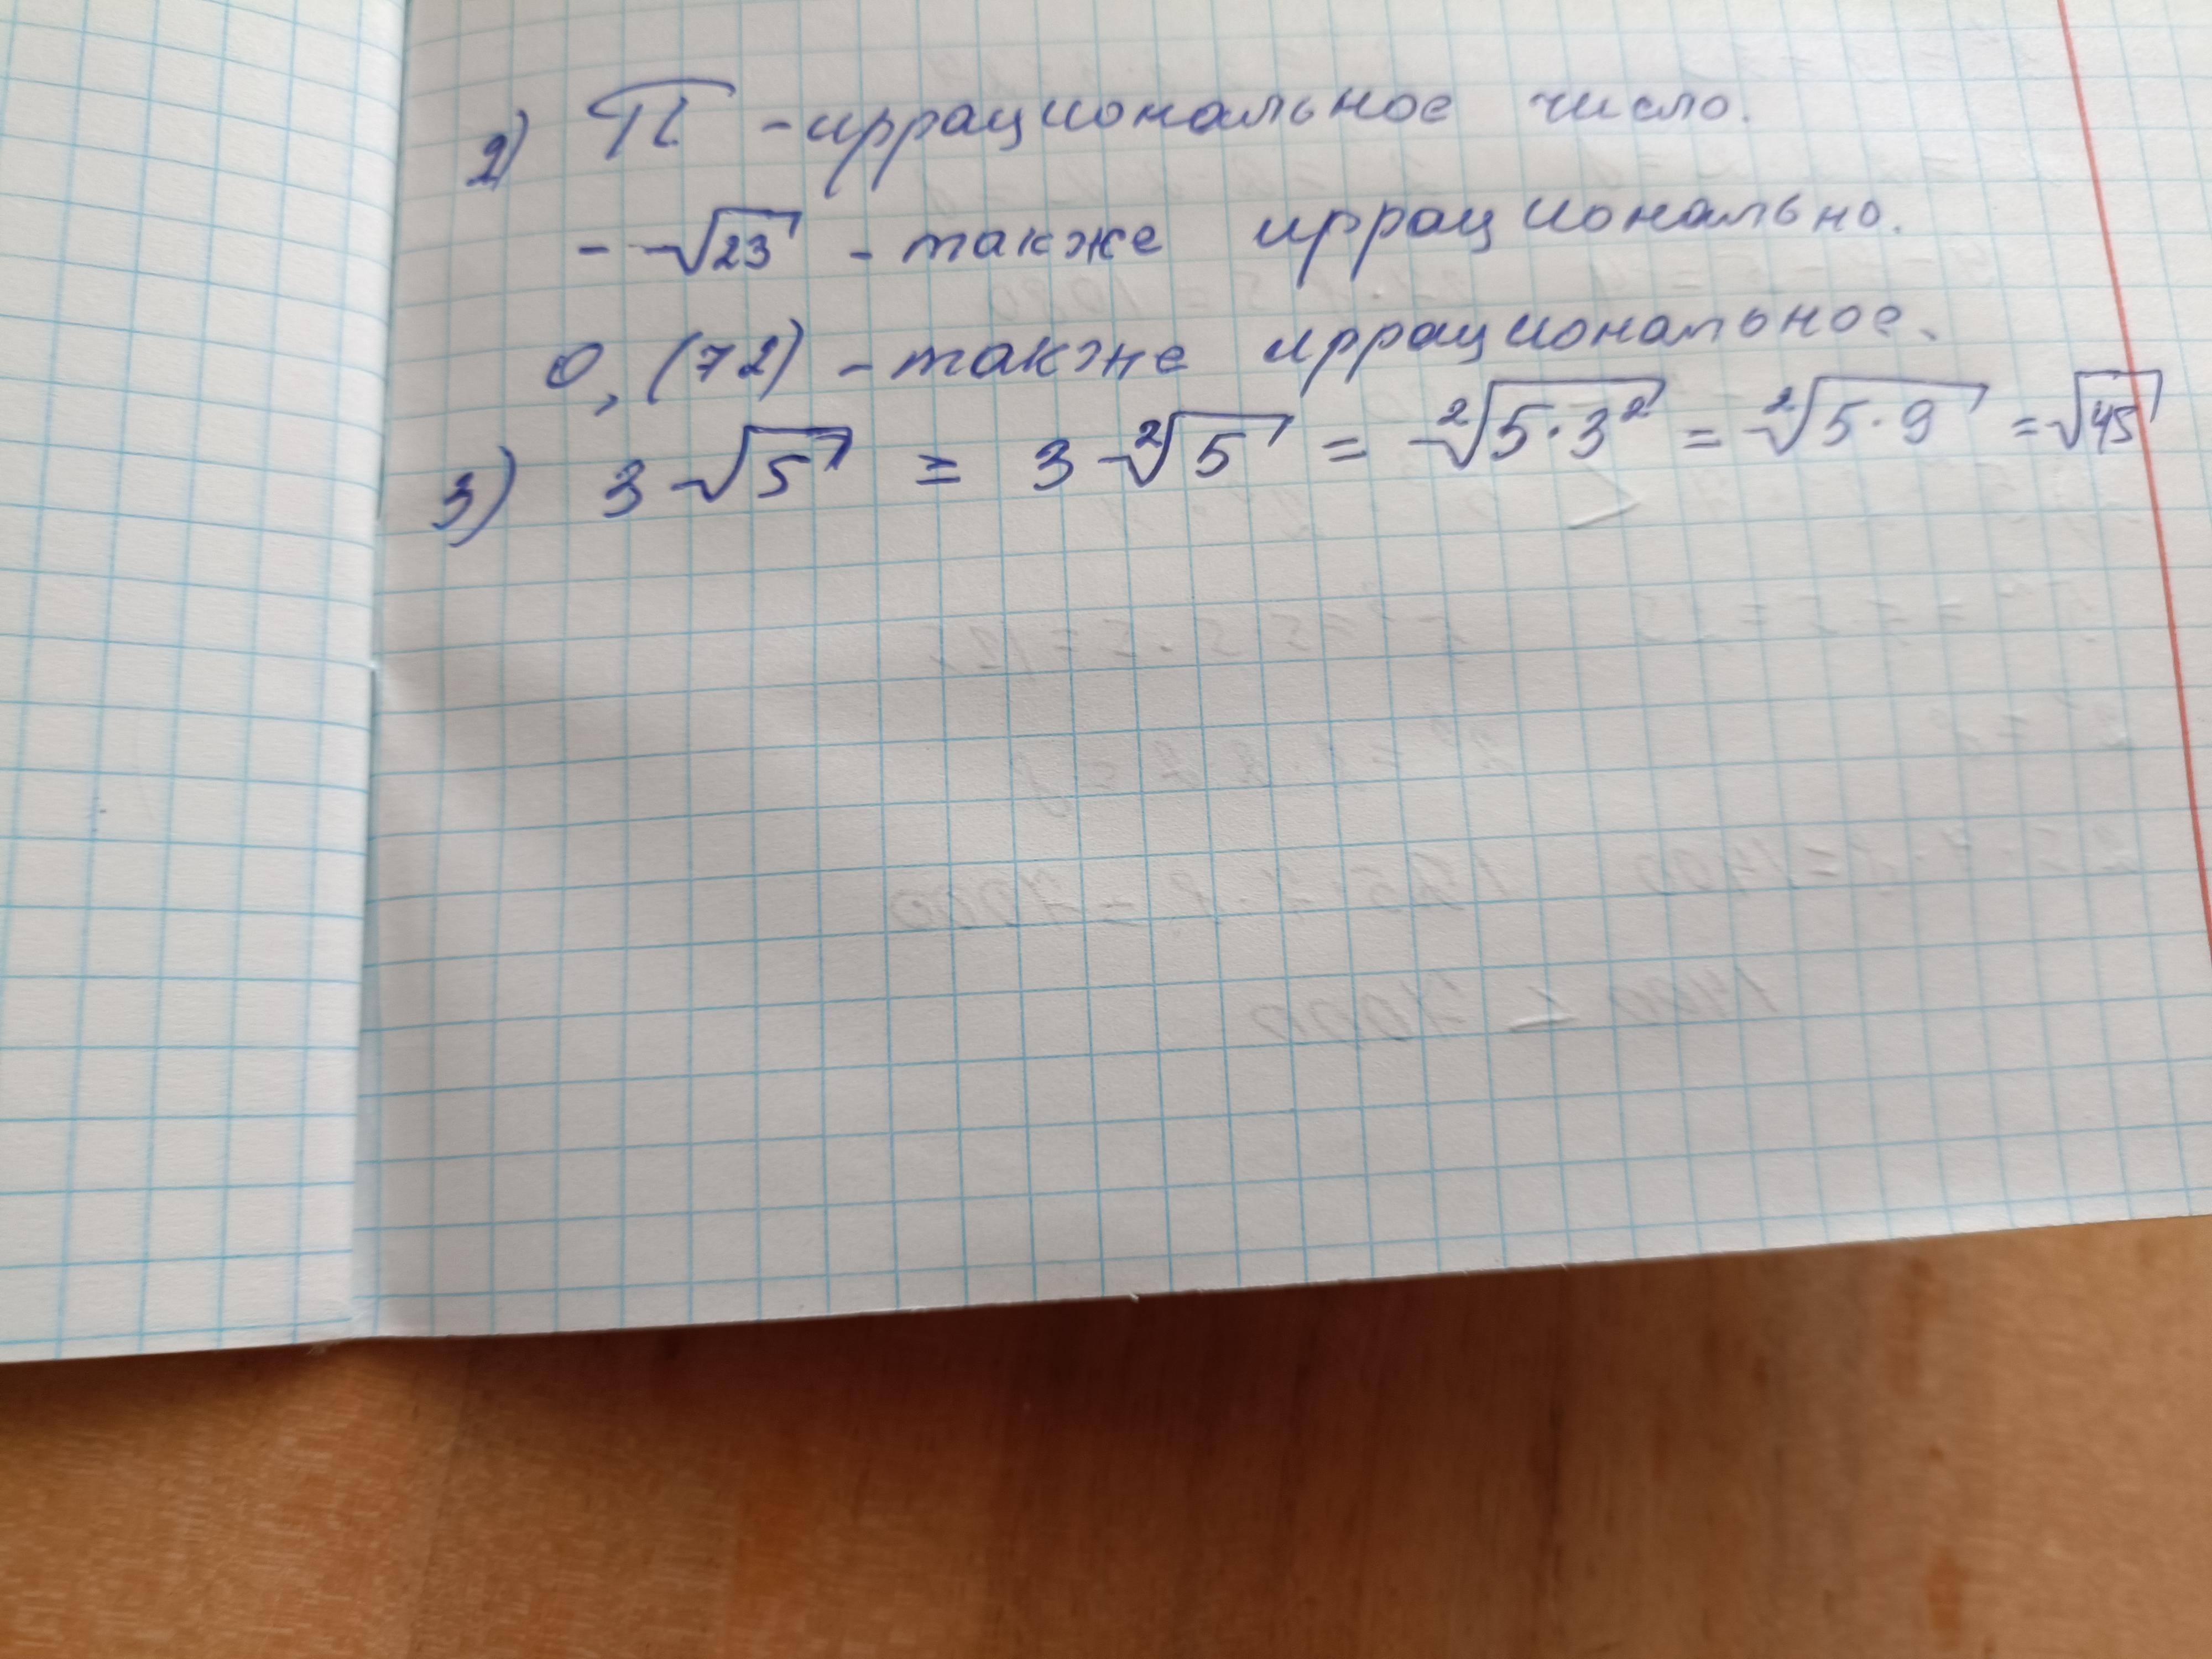 2) π - иррациональное число.
- √23 - также иррационально.
0,(72) - также иррациональное.
3) 3√5 = 3 ²√5 = ²√5·3² = ²√5·9 = √45